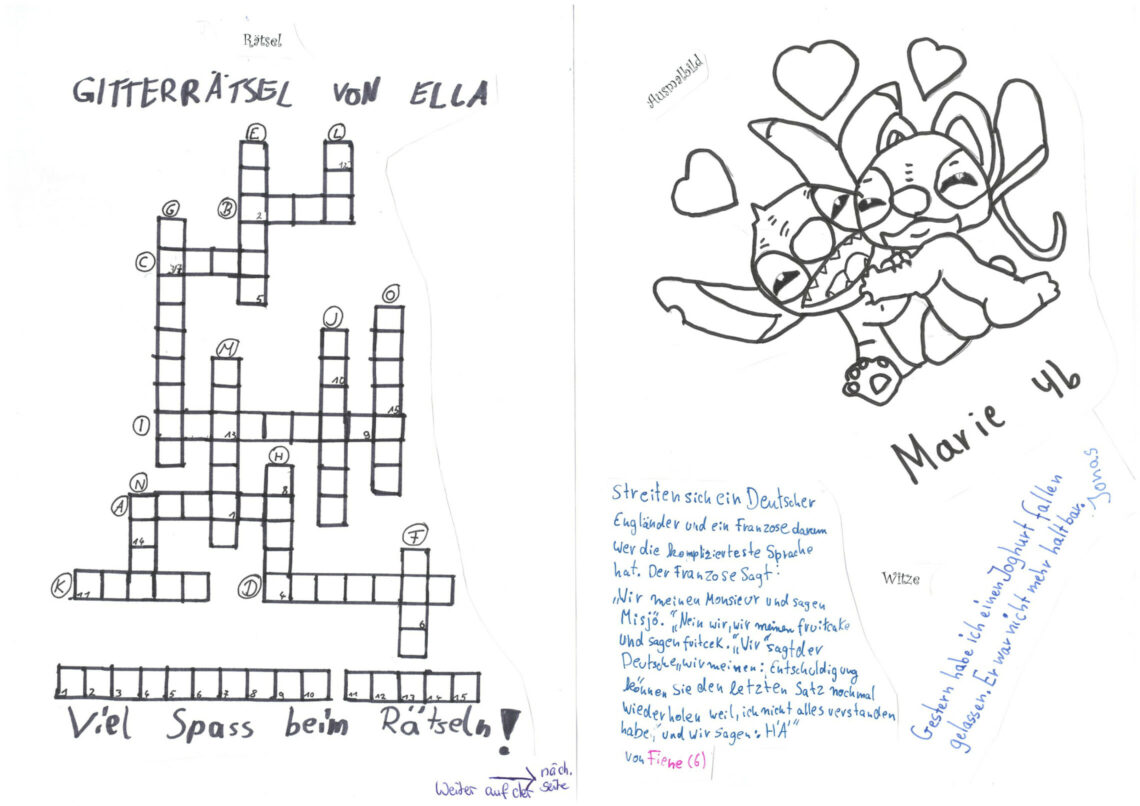 Rätsel
GITTERRÄTSEL VON ELLA
E
L
12
G
B
2
C
3/7
5
O
J
M
10
15
I
13
9
H
N
8
A
1
14
F
K
11
D
4
6
1 2 3 4 5 6 7 8 9 10 11 12 13 14 15
Viel Spass beim Rätseln!
Weiter auf der näch. seite
Ausmalbild
Marie 4b
Streiten sich ein Deutscher
Engländer und ein Franzose darum
wer die komplizierteste Sprache
hat. Der Franzose Sagt:
„Wir meinen Monsieur und sagen
Misjö. "„Nein wir, wir meinen fruitcake
und sagen fruitcek." „Wir" sagt der
Deutsche „wir meinen: Entschuldigung
können Sie den letzten Satz nochmal
wiederholen weil, ich nicht alles verstanden
habe," und wir sagen: HÄ"
von Fiene (6)
Witze
Gestern habe ich einen Joghurt fallen
gelassen. Er war nicht mehr haltbar.
Jonas